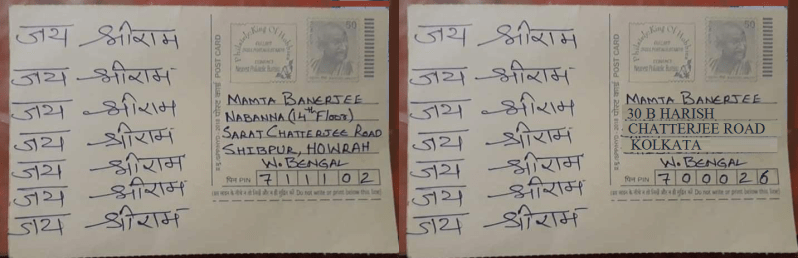 जय श्रीराम
जय श्रीराम
जय श्रीराम
जय श्रीराम
जय श्रीराम
जय श्रीराम
जय श्रीराम
POST CARD
50
MAMTA BANERJEE
NABANNA (14th FLOOR)
SARAT CHATTERJEE ROAD
SHIBPUR, HOWRAH
W. BENGAL
पिन PIN 711102
जय श्रीराम
जय श्रीराम
जय श्रीराम
जय श्रीराम
जय श्रीराम
जय श्रीराम
जय श्रीराम
POST CARD
50
MAMTA BANERJEE
30 B HARISH
CHATTERJEE ROAD
KOLKATA
W. BENGAL
पिन PIN 700026